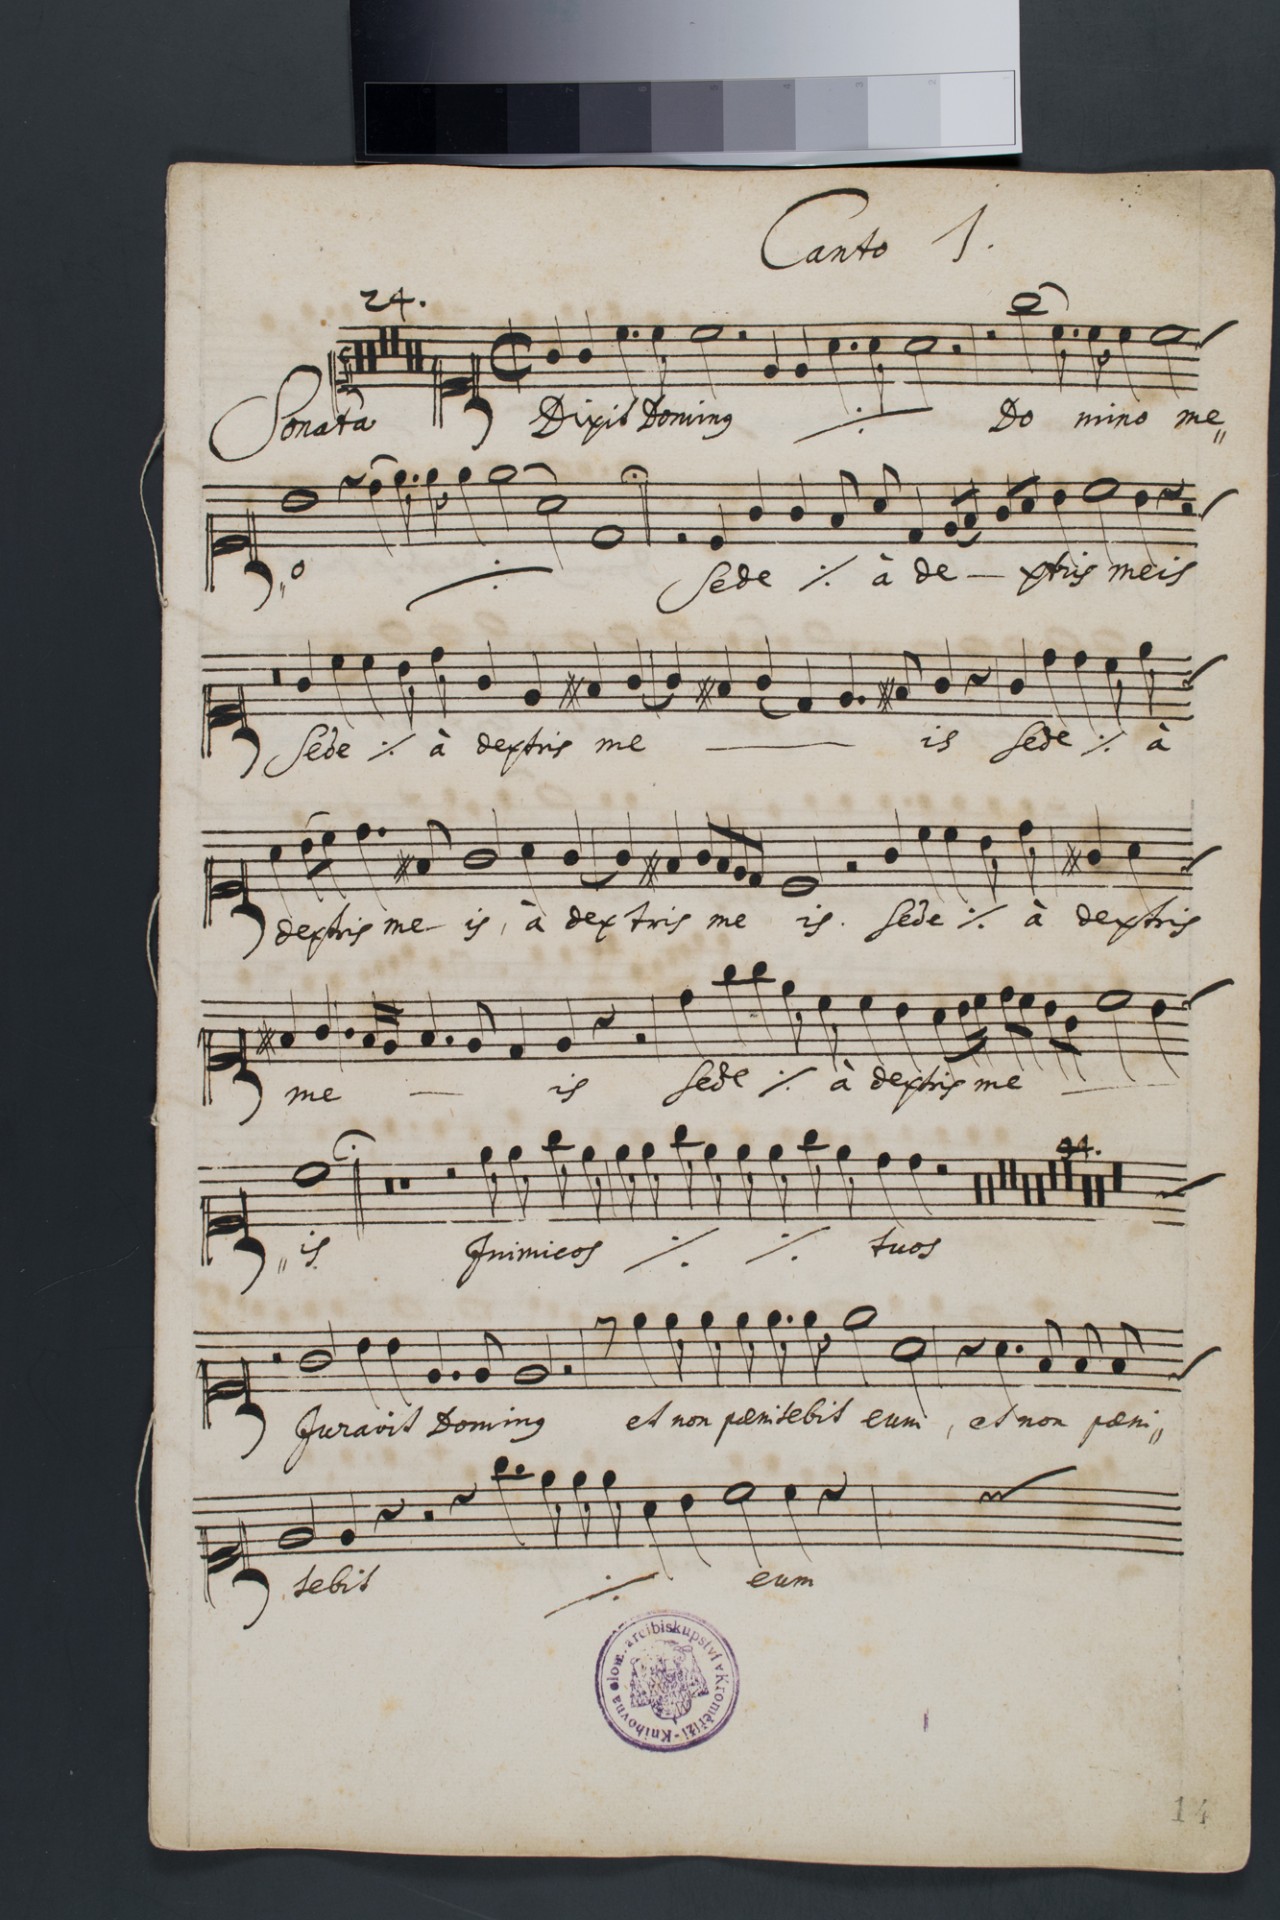 Canto 1.
24.
Sonata Dixit Dominꝰ ·/. Do mino me„
„o ·/. Sede ·/. à de — xtris meis
Sede ·/. à dextris me — is Sede ·/. à
dextris me- is, à dex tris me is. Sede ·/. à dextris
me — is Sede ·/. à dextris me —
34.
„is. Inimicos ·/. ·/. tuos
Juravit Dominꝰ et non pænitebit eum, et non pæni„
tebit ·/. eum
Knihovna olom. arcibiskupství v Kroměříži -
14